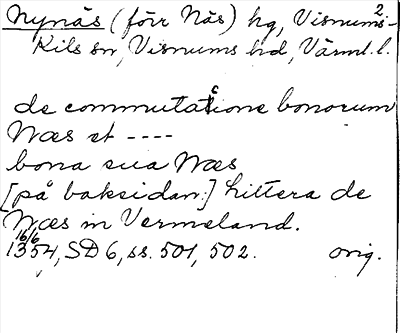 2.
Nynäs (förr Näs) hg, Visnums-
Kils sn, Visnums hd, Värml. l.
de commutatione bonorum
Næs et ----
bona sua Næs
[på baksidan:] littera de
Næs in Vermeland.
16/6
1354, SD 6, ss. 501, 502. orig.